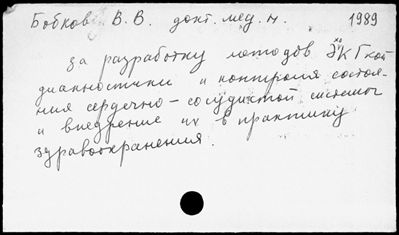 Бобков В. В. докт. мед. н. 1989
за разработку методов ЭКГ-кой
диагностики и контроля состоя-
ния сердечно-сосудистой системы
и внедрение их в практику
здравоохранения.